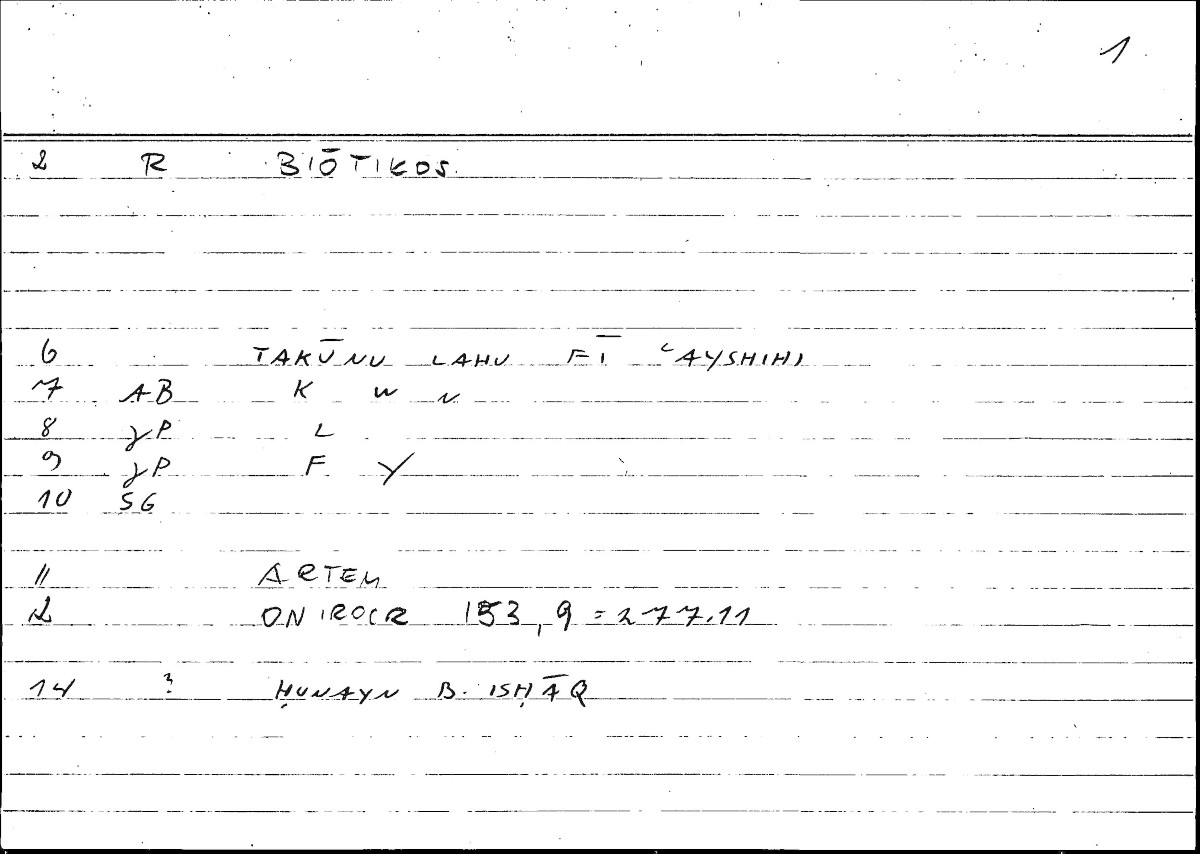 1
2 R BIŌTIKOS
6 TAKŪNU LAHU FĪ ʿAYSHIHI
7 AB K W N
8 γP L
9 γP F Y
10 SG
11 ARTEM
2 ONIROCR 153,9=277.11
14 ? ḤUNAYN B. ISḤĀQ